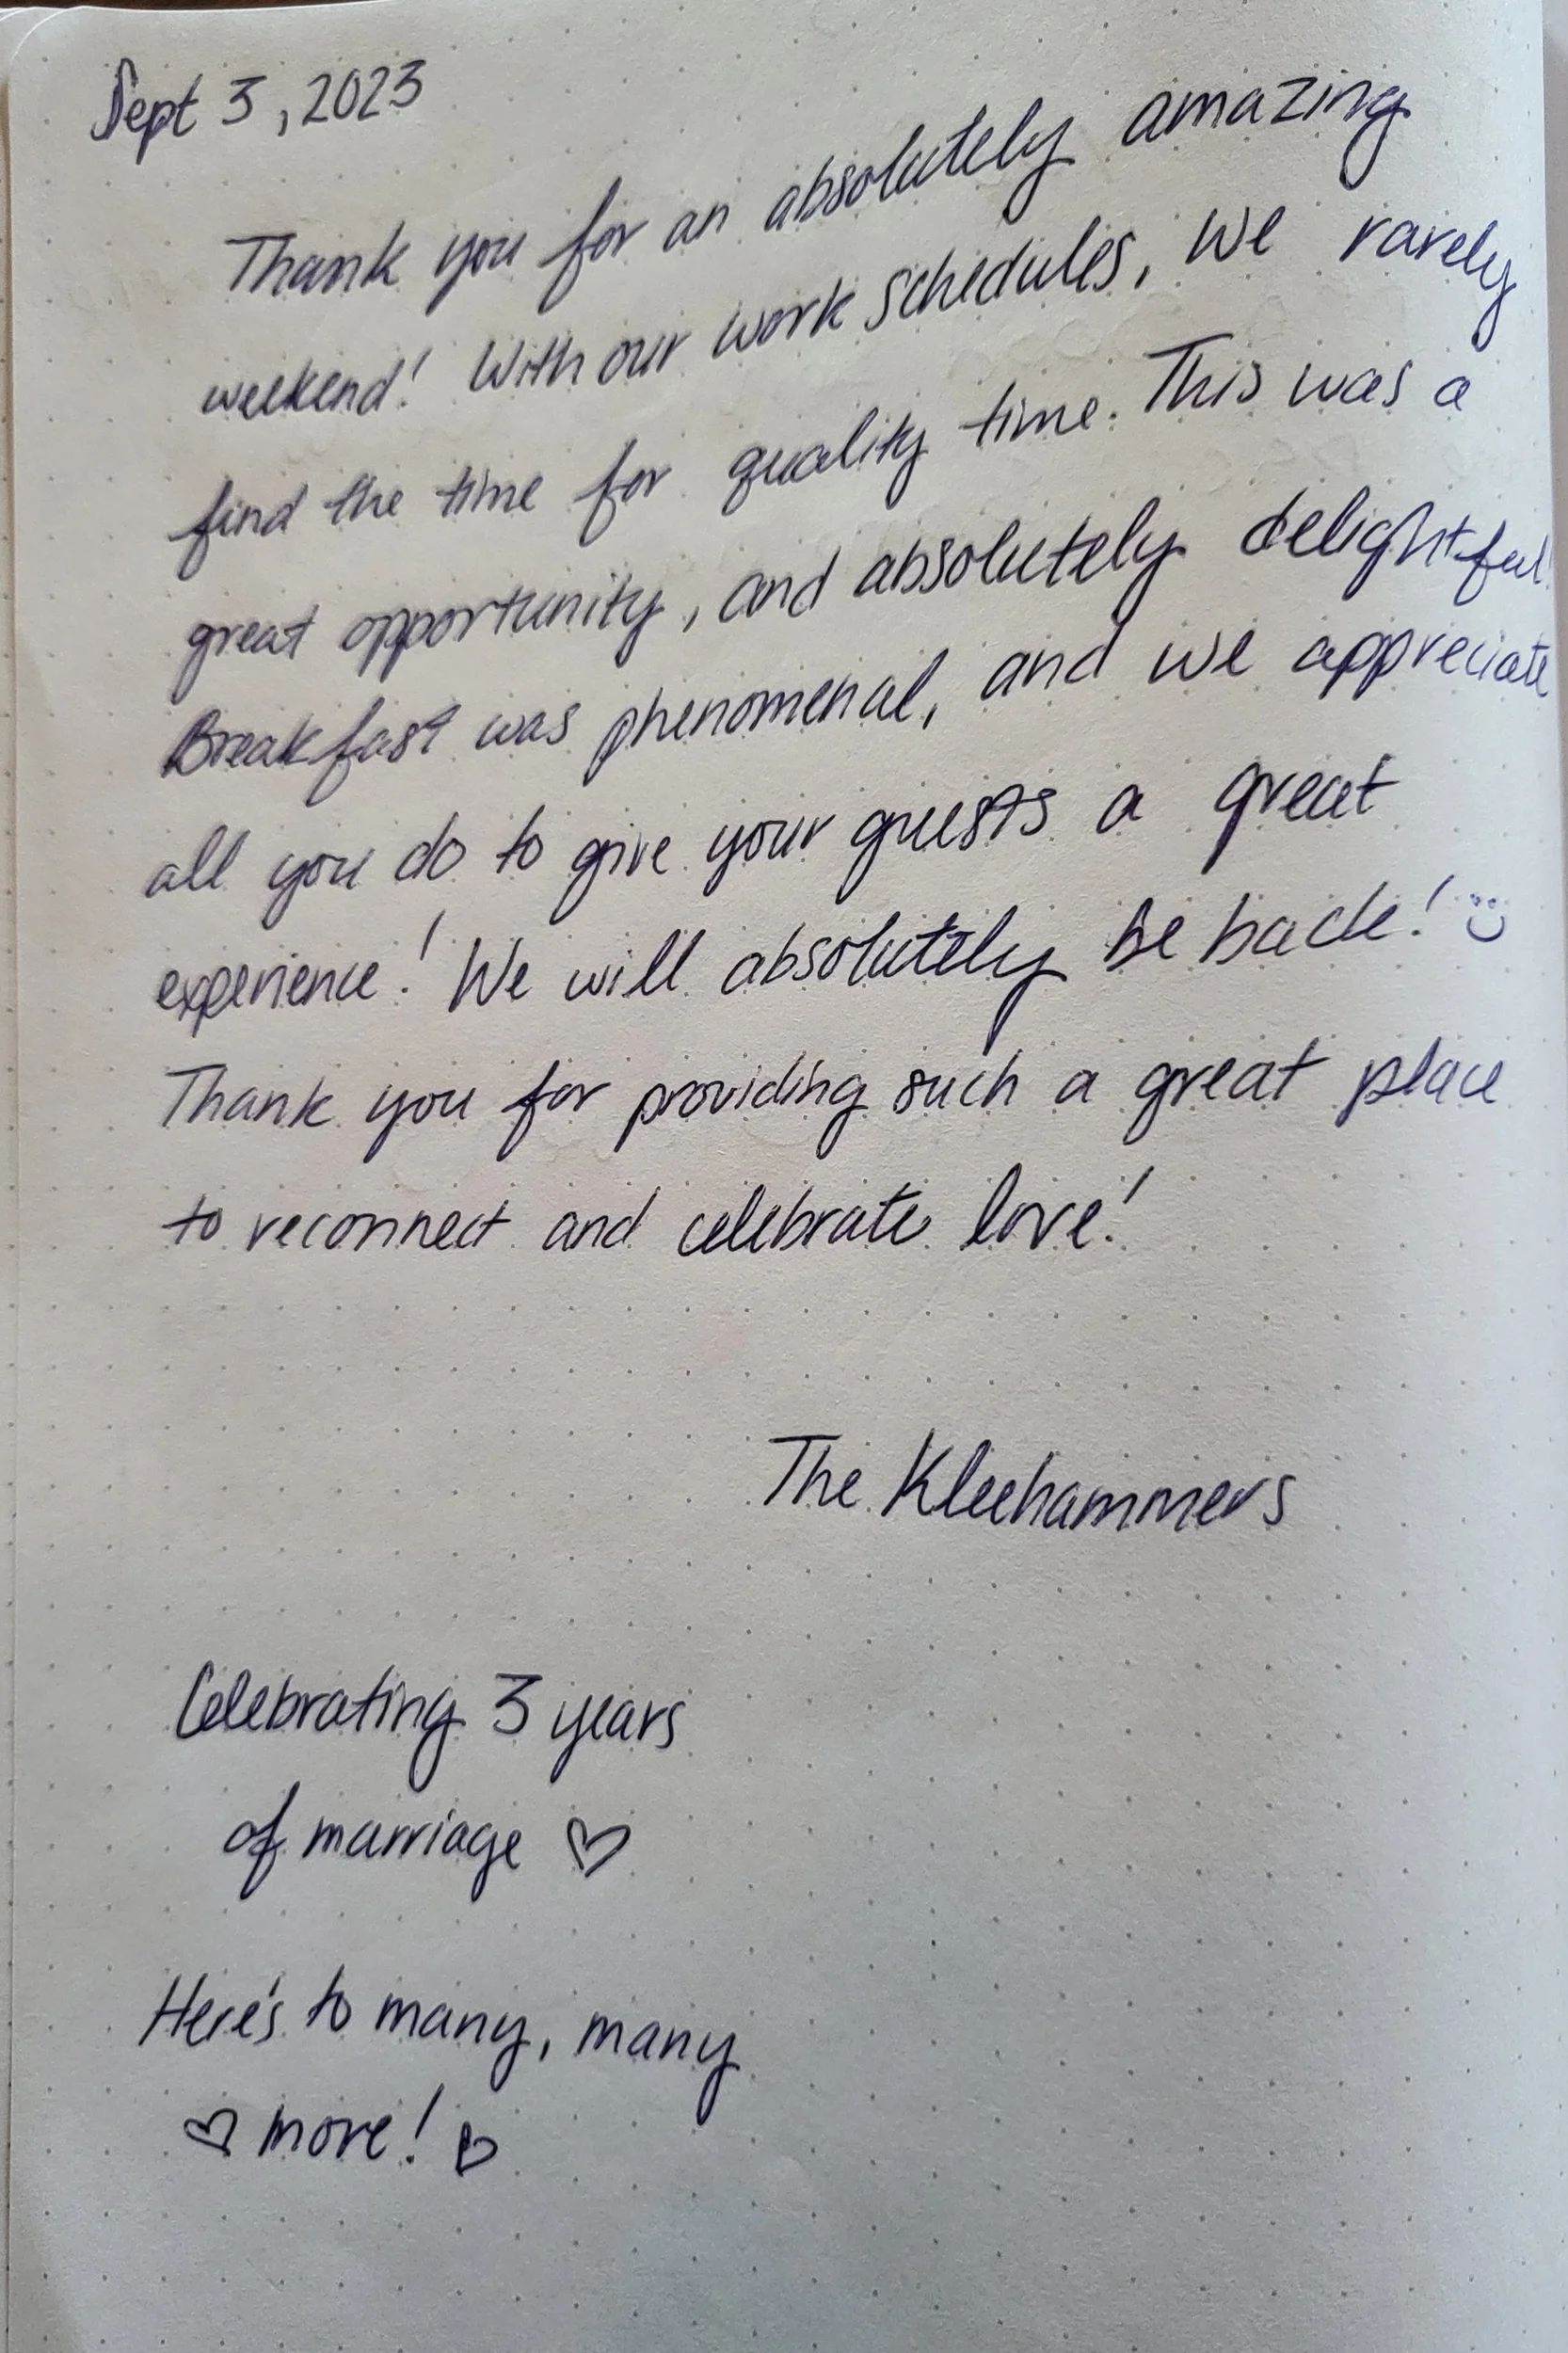 Sept 3, 2023
Thank you for an absolutely amazing
weekend! With our work schedules, we rarely
find the time for quality time. This was a
great opportunity, and absolutely delightful.
Breakfast was phenomenal, and we appreciate
all you do to give your guests a great
experience! We will absolutely be back! :)
Thank you for providing such a great place
to reconnect and celebrate love!
The Kleehammers
Celebrating 3 years
of marriage ♡
Here's to many, many
♡ more! ♡